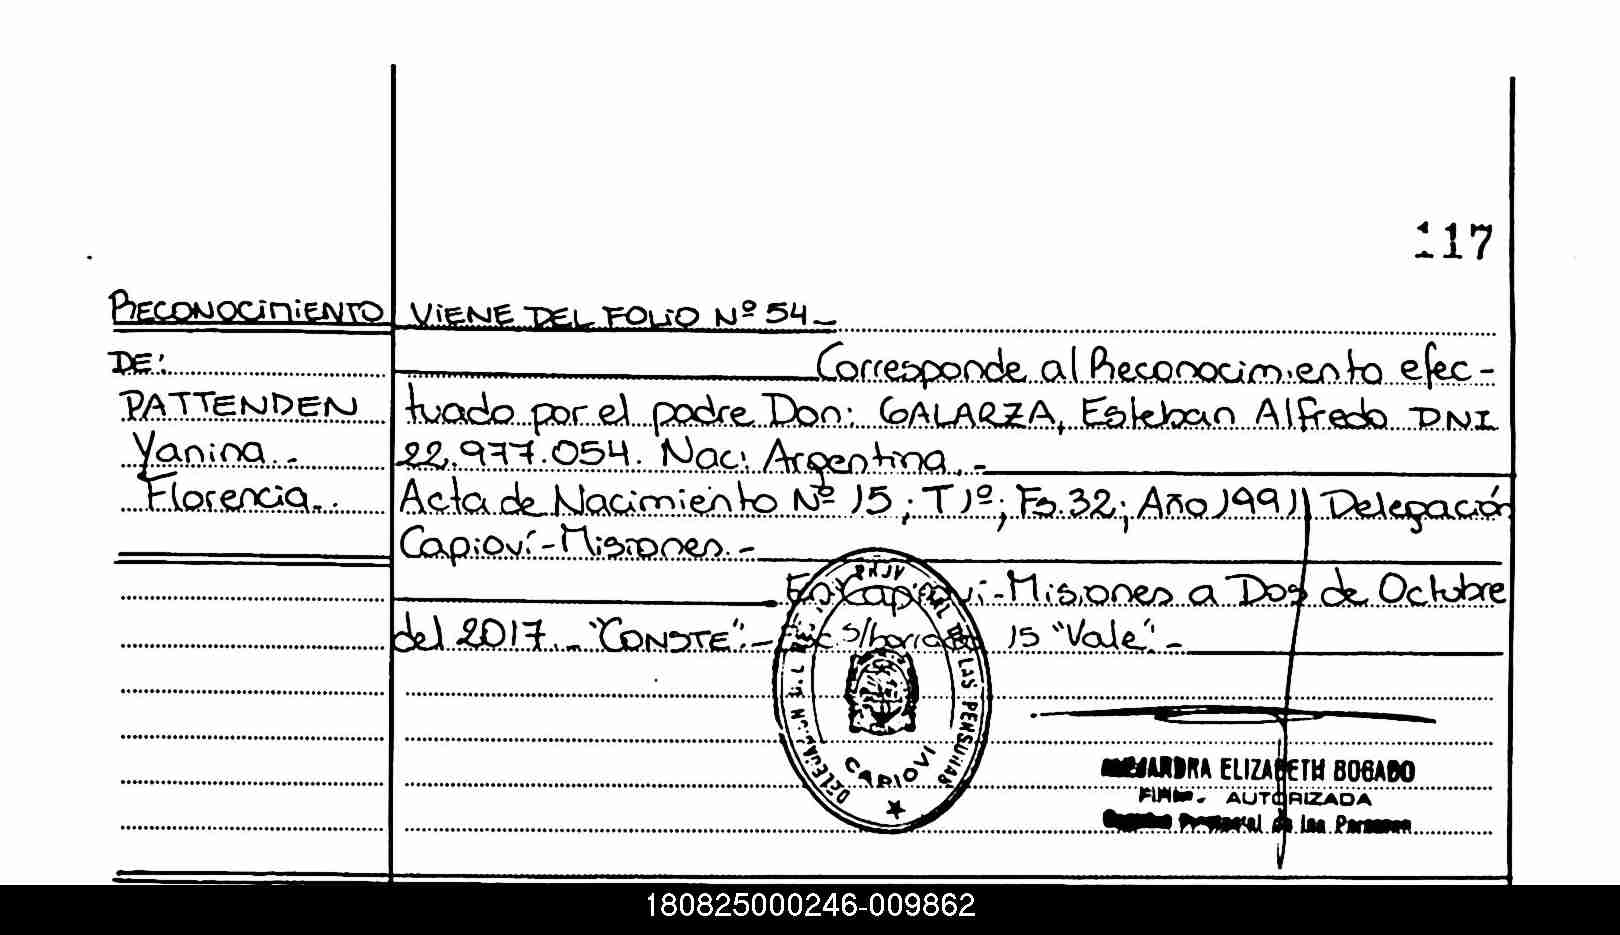 117
RECONOCIMIENTO
DE:
PATTENDEN
Yanina.-
Florencia.-
VIENE DEL FOLIO Nº 54.-
Corresponde al Reconocimiento efec-
tuado por el padre Don: GALARZA, Esteban Alfredo DNI
22.977.054. Nac: Argentina.-
Acta de Nacimiento Nº 15; T1º; Fs.32; Año 1991 Delegación
Capioví-Misiones.-
En Capioví-Misiones a Dos de Octubre
del 2017.- "CONSTE".- s/borrado 15 "Vale".-
CAPIOVI
ELIZABETH BOGADO
AUTORIZADA
de las Personas
180825000246-009862